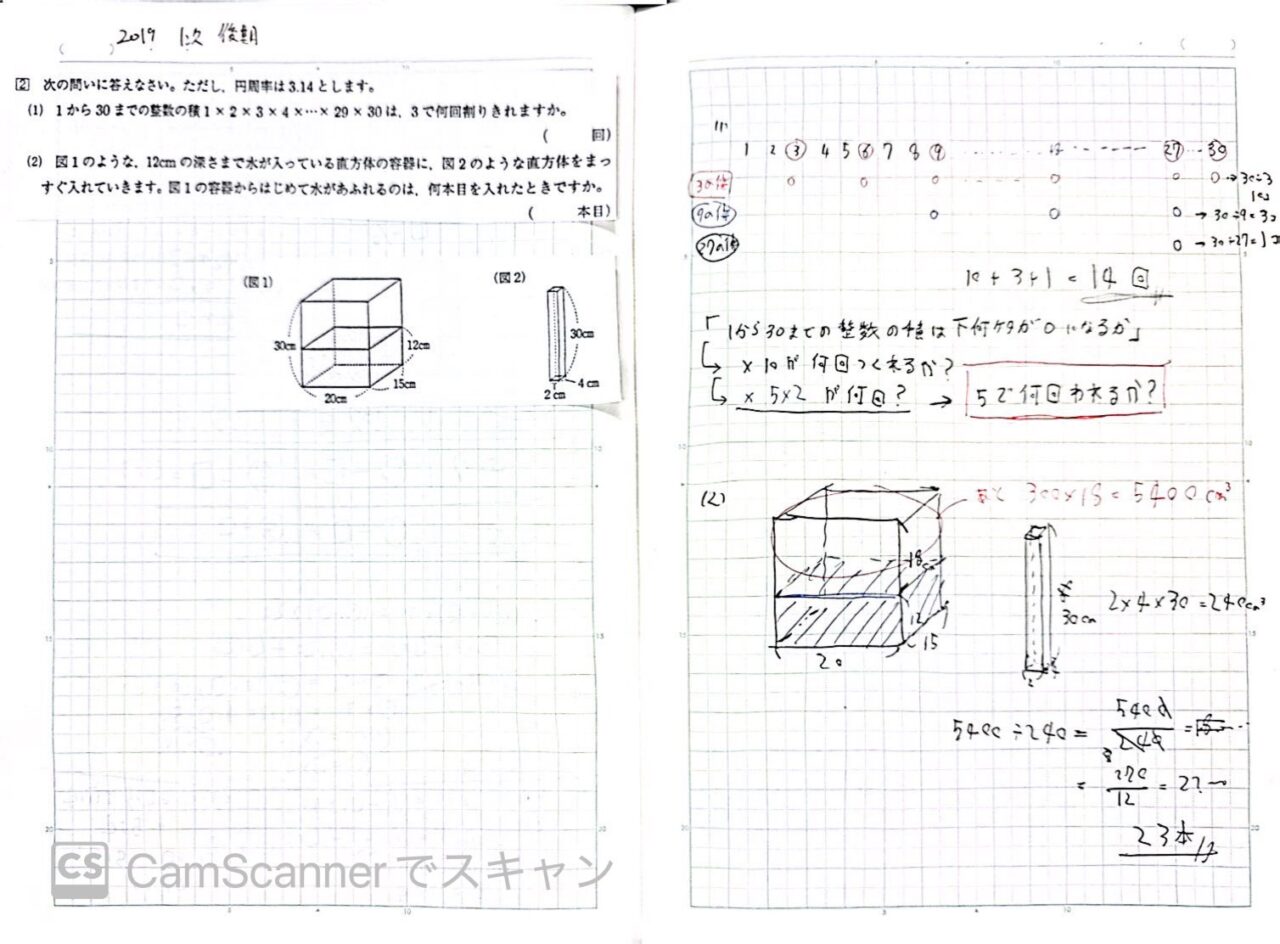 2019 1次 後期
2 次の問いに答えなさい。ただし、円周率は3.14とします。
(1) 1から30までの整数の積1×2×3×4×…×29×30は、3で何回割りきれますか。
( 回)
(2) 図1のような、12cmの深さまで水が入っている直方体の容器に、図2のような直方体をまっ
すぐ入れていきます。図1の容器からはじめて水があふれるのは、何本目を入れたときですか。
( 本目)
(図1)
30cm
12cm
15cm
20cm
(図2)
30cm
4cm
2cm
(1)
1 2 3 4 5 6 7 8 9 ‥‥‥ 18 ‥‥‥ 27 ‥ 30
3の倍 ○ ○ ○ ‥‥ ○ ○ ○ → 30÷3
9の倍 ○ ○ ○ → 30÷9=3
27の倍 ○ → 30÷27=1
10+3+1=14回
「1から30までの整数の積は下何ケタが0になるか」
×10が何回つくれるか?
×5×2が何回? → 5で何回われるか?
(2)
300×18=5400cm³
18cm
12
15
20
30cm
2×4×30=240cm³
2
5400÷240= 5400/240 =
= 270/12 = 22…
23本
CS CamScannerでスキャン